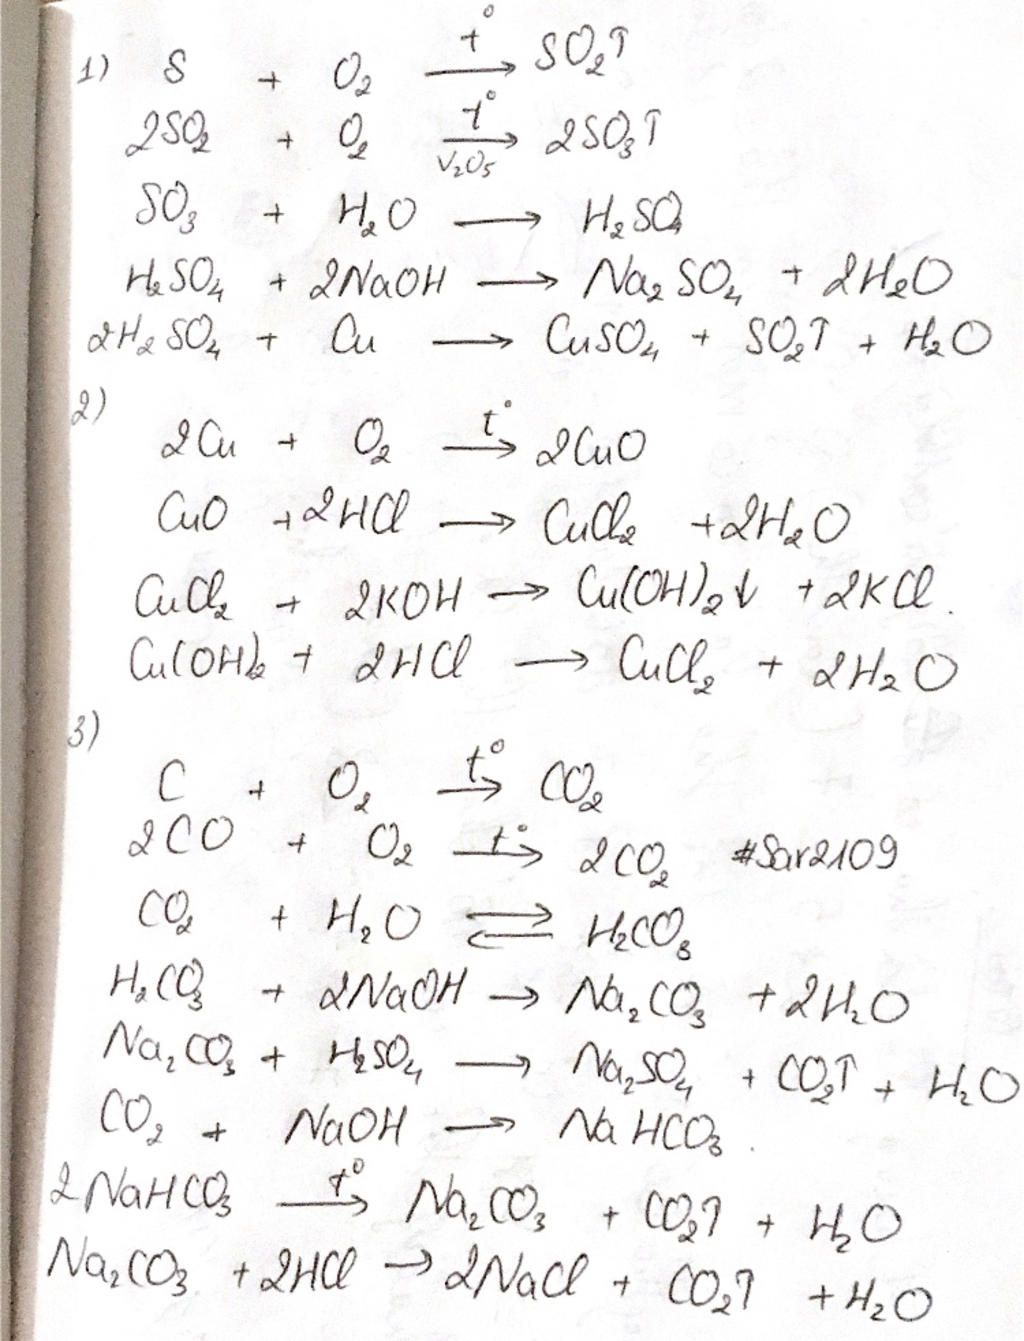 1) S + O₂ →(t°) SO₂↑
2SO₂ + O₂ →(t°, V₂O₅) 2SO₃↑
SO₃ + H₂O → H₂SO₄
H₂SO₄ + 2NaOH → Na₂SO₄ + 2H₂O
2H₂SO₄ + Cu → CuSO₄ + SO₂↑ + H₂O
2)
2Cu + O₂ →(t°) 2CuO
CuO + 2HCl → CuCl₂ + 2H₂O
CuCl₂ + 2KOH → Cu(OH)₂↓ + 2KCl.
Cu(OH)₂ + 2HCl → CuCl₂ + 2H₂O
3)
C + O₂ →(t°) CO₂
2CO + O₂ →(t°) 2CO₂ #Sar2109
CO₂ + H₂O ⇄ H₂CO₃
H₂CO₃ + 2NaOH → Na₂CO₃ + 2H₂O
Na₂CO₃ + H₂SO₄ → Na₂SO₄ + CO₂↑ + H₂O
CO₂ + NaOH → NaHCO₃.
2NaHCO₃ →(t°) Na₂CO₃ + CO₂↑ + H₂O
Na₂CO₃ + 2HCl → 2NaCl + CO₂↑ + H₂O